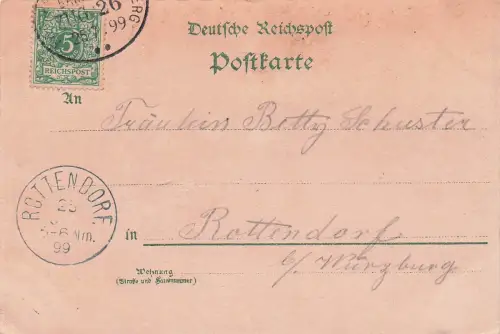 BERG
26
99
5
REICHSPOST
Deutsche Reichspost
Postkarte
An
Fräulein Betty Schuster
ROTTENDORF
25
5-6 Nm.
99
in
Rottendorf
b/ Würzburg
Wohnung
(Straße und Hausnummer)